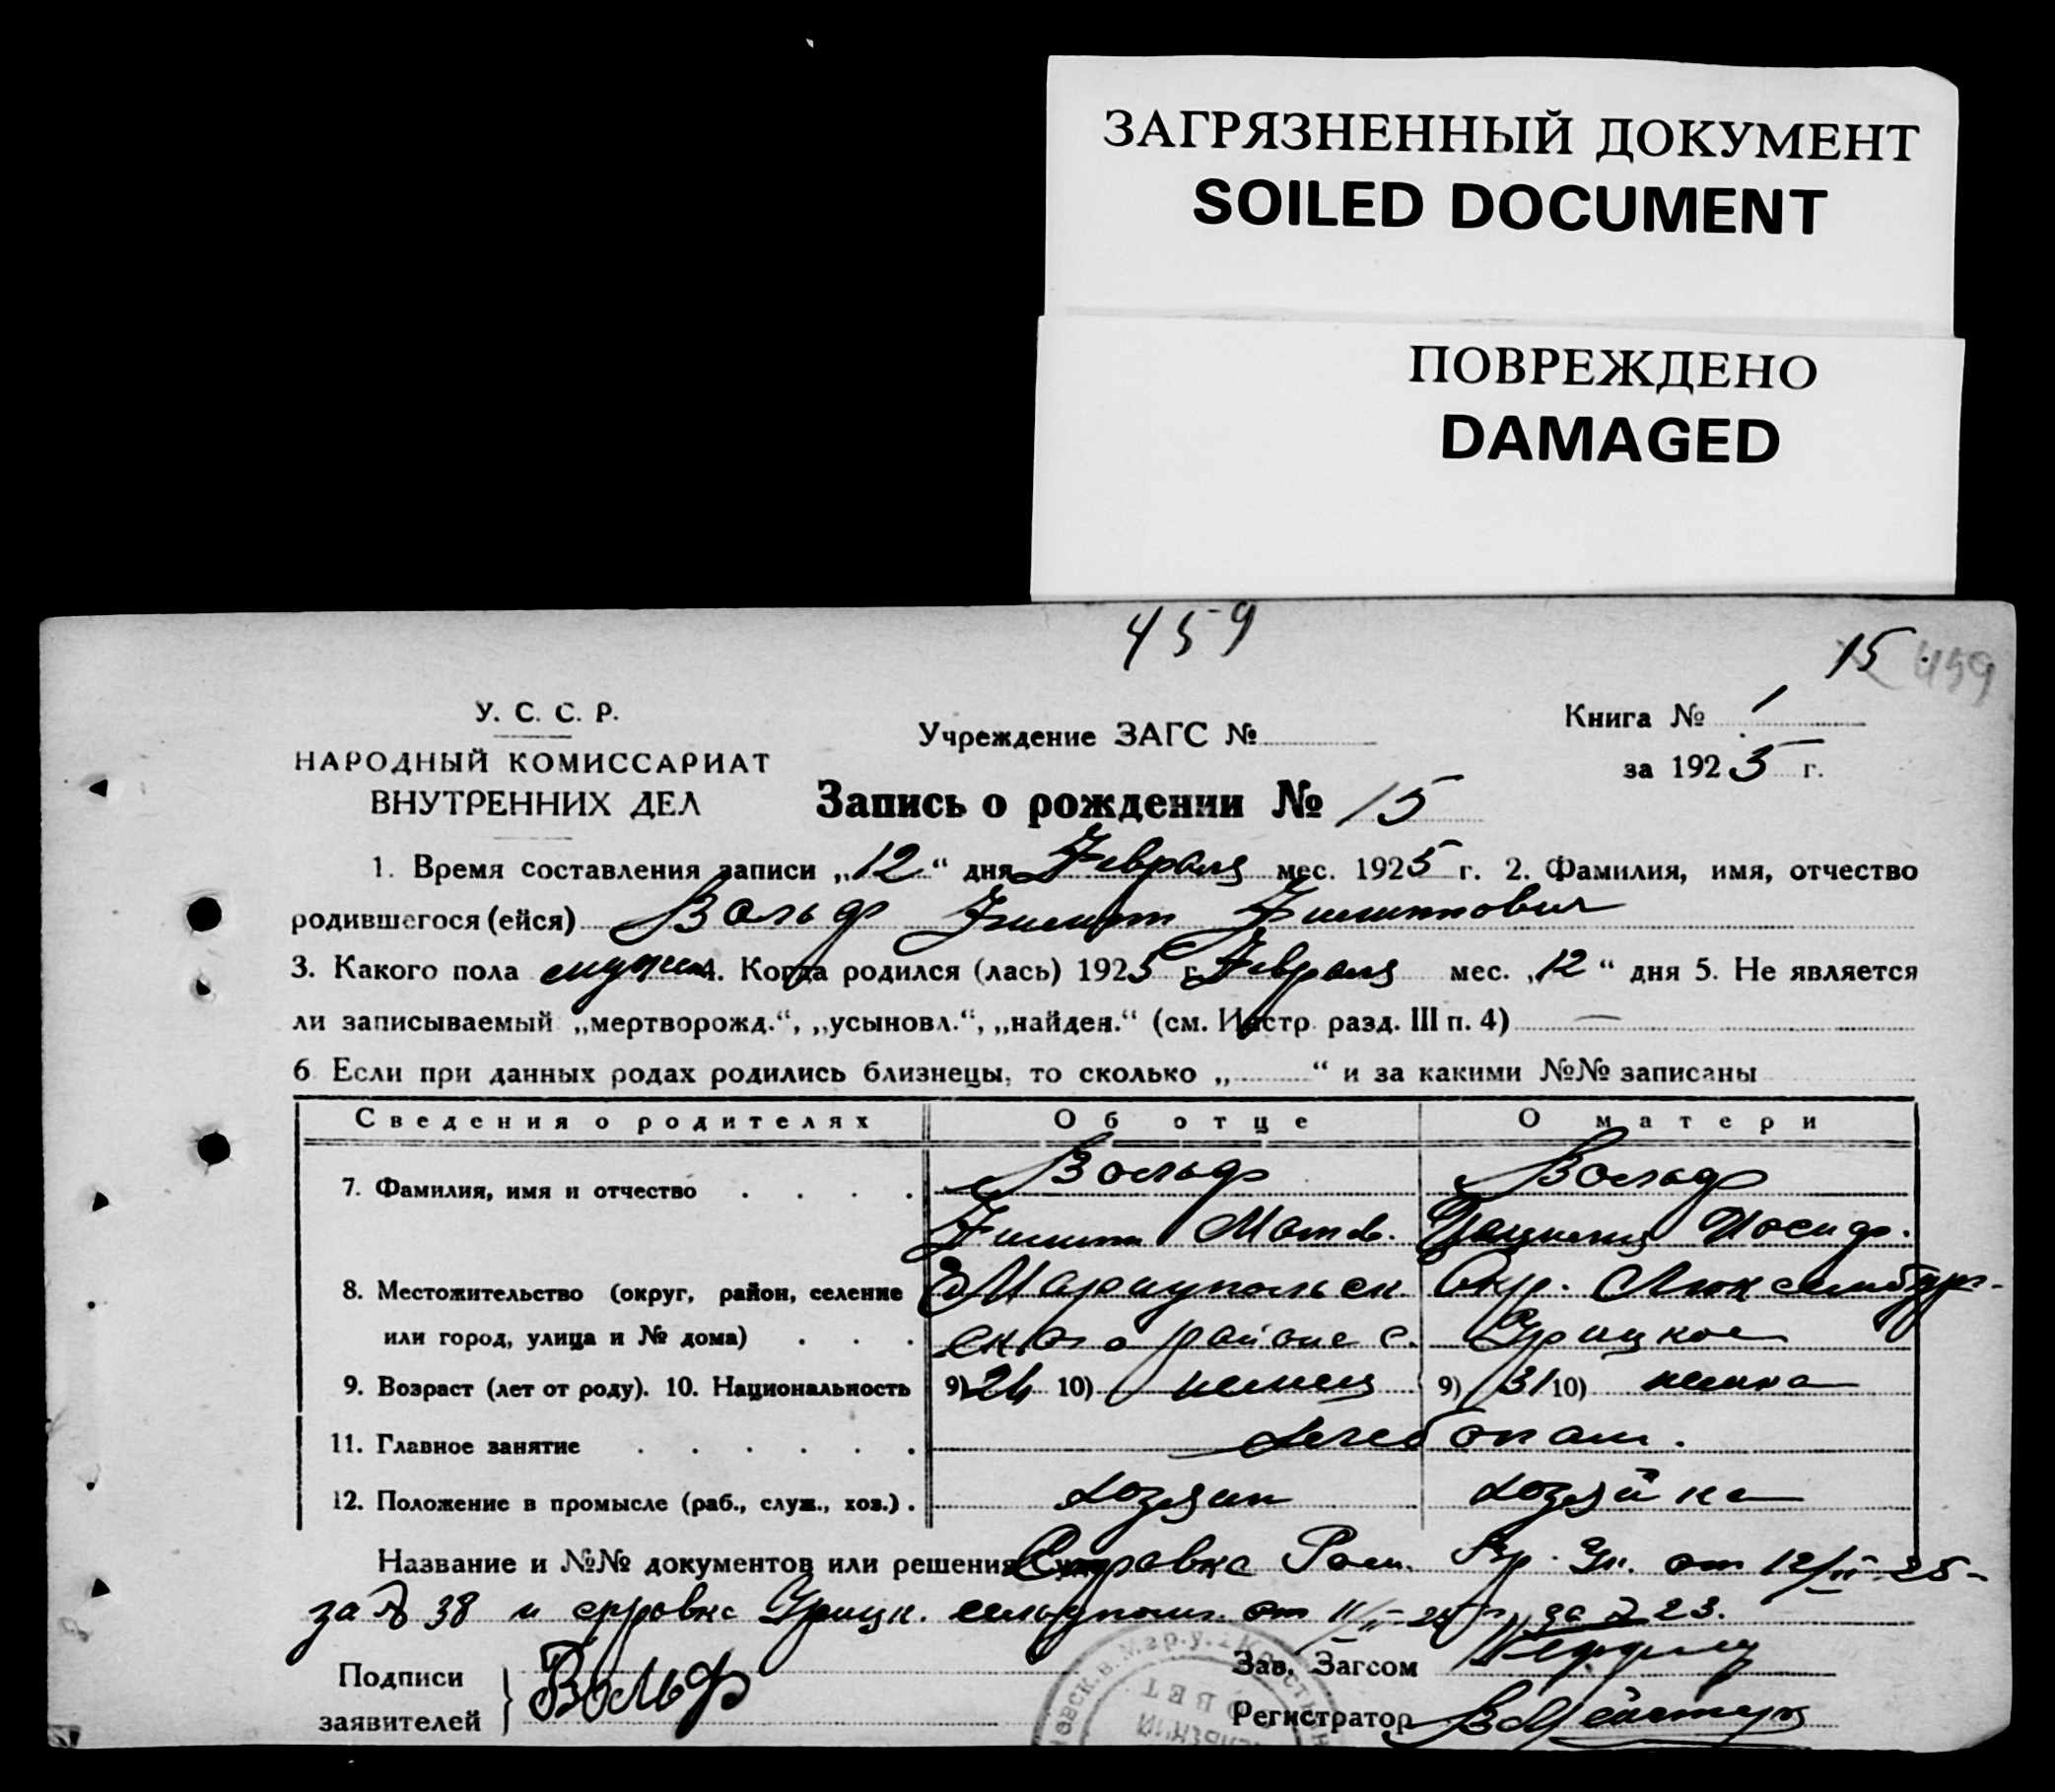 ЗАГРЯЗНЕННЫЙ ДОКУМЕНТ
SOILED DOCUMENT
ПОВРЕЖДЕНО
DAMAGED
459
15. 459
У. С. С. Р.
НАРОДНЫЙ КОМИССАРИАТ
ВНУТРЕННИХ ДЕЛ
Учреждение ЗАГС №
Книга № 1
за 1925 г.
Запись о рождении № 15
1. Время составления записи „12“ дня Февраля мес. 1925 г. 2. Фамилия, имя, отчество
родившегося (ейся) Вольф Филипп Филиппович
3. Какого пола мужск 4. Когда родился (лась) 1925 г. Февраля мес. „12“ дня 5. Не является
ли записываемый „мертворожд.“, „усыновл.“, „найден.“ (см. Инстр. разд. III п. 4) —
6 Если при данных родах родились близнецы, то сколько „ “ и за какими №№ записаны
Сведения о родителях Об отце О матери
7. Фамилия, имя и отчество Вольф Вольф
Филипп Матв. Иосиф.
8. Местожительство (округ, район, селение Мариупольск. Окр. Люксембург-
или город, улица и № дома) ского районе с. Грицкое
9. Возраст (лет от роду). 10. Национальность 9) 26 10) немец 9) 31 10) немка
11. Главное занятие хлебопаш.
12. Положение в промысле (раб., служ., хоз.) хозяин хозяйка
Название и №№ документов или решения Справка от 12/II-25-
за № 38 и справка Грицк. от 11/II-25 г. за № 23.
Подписи
заявителей Вольф
Зав. Загсом
Регистратор